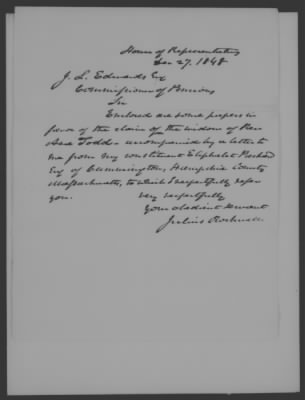 House of Representatives
Jan 27. 1848
J. L. Edwards Esq
Commissioner of Pensions
Sir
Enclosed are some papers in
favor of the claim of the widow of Rev
Asa Todd - accompanied by a letter to
me from my constituent Eliphalet Packard
Esq of Cummington, Hampshire County
Massachusetts, to which I respectfully refer
you.
Very respectfully
Your obedient servant
Julius Rockwell